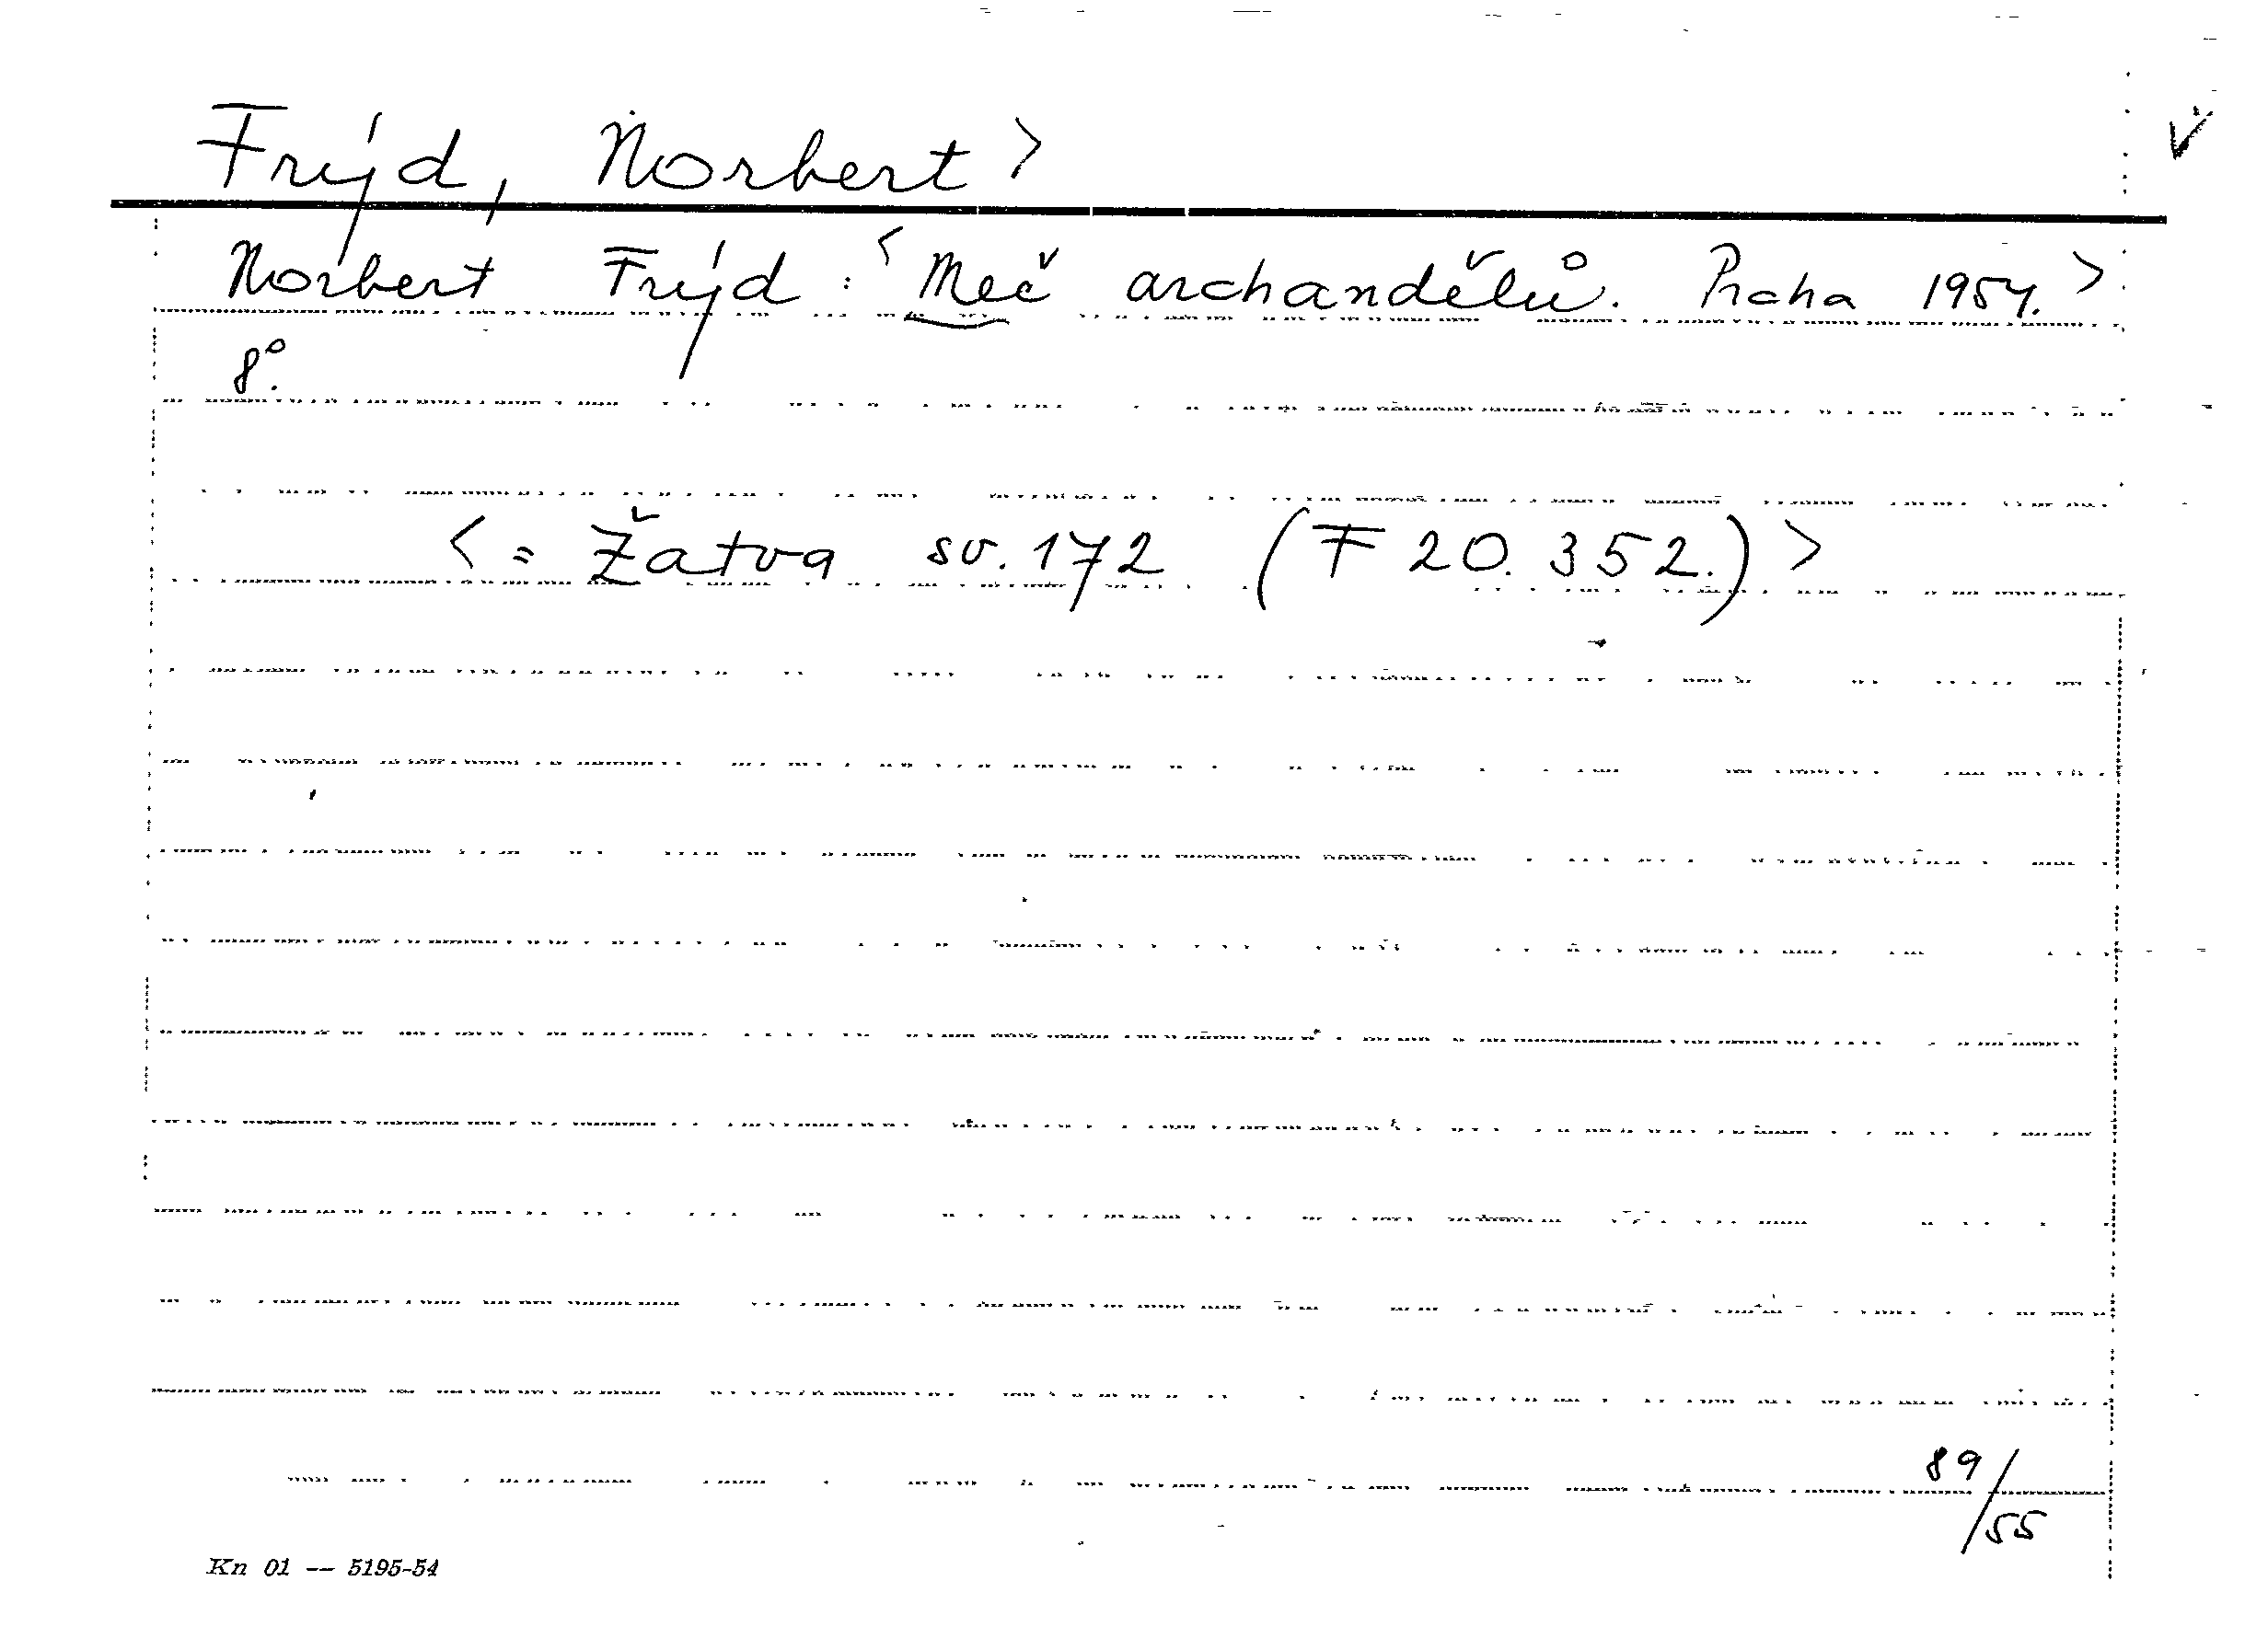 Frýd, Norbert >
Norbert Frýd : < Meč archandělů. Praha 1954. >
8°.
< = Žatva sv. 172 (F 20.352.) >
89/55
Kn 01 — 5195-54